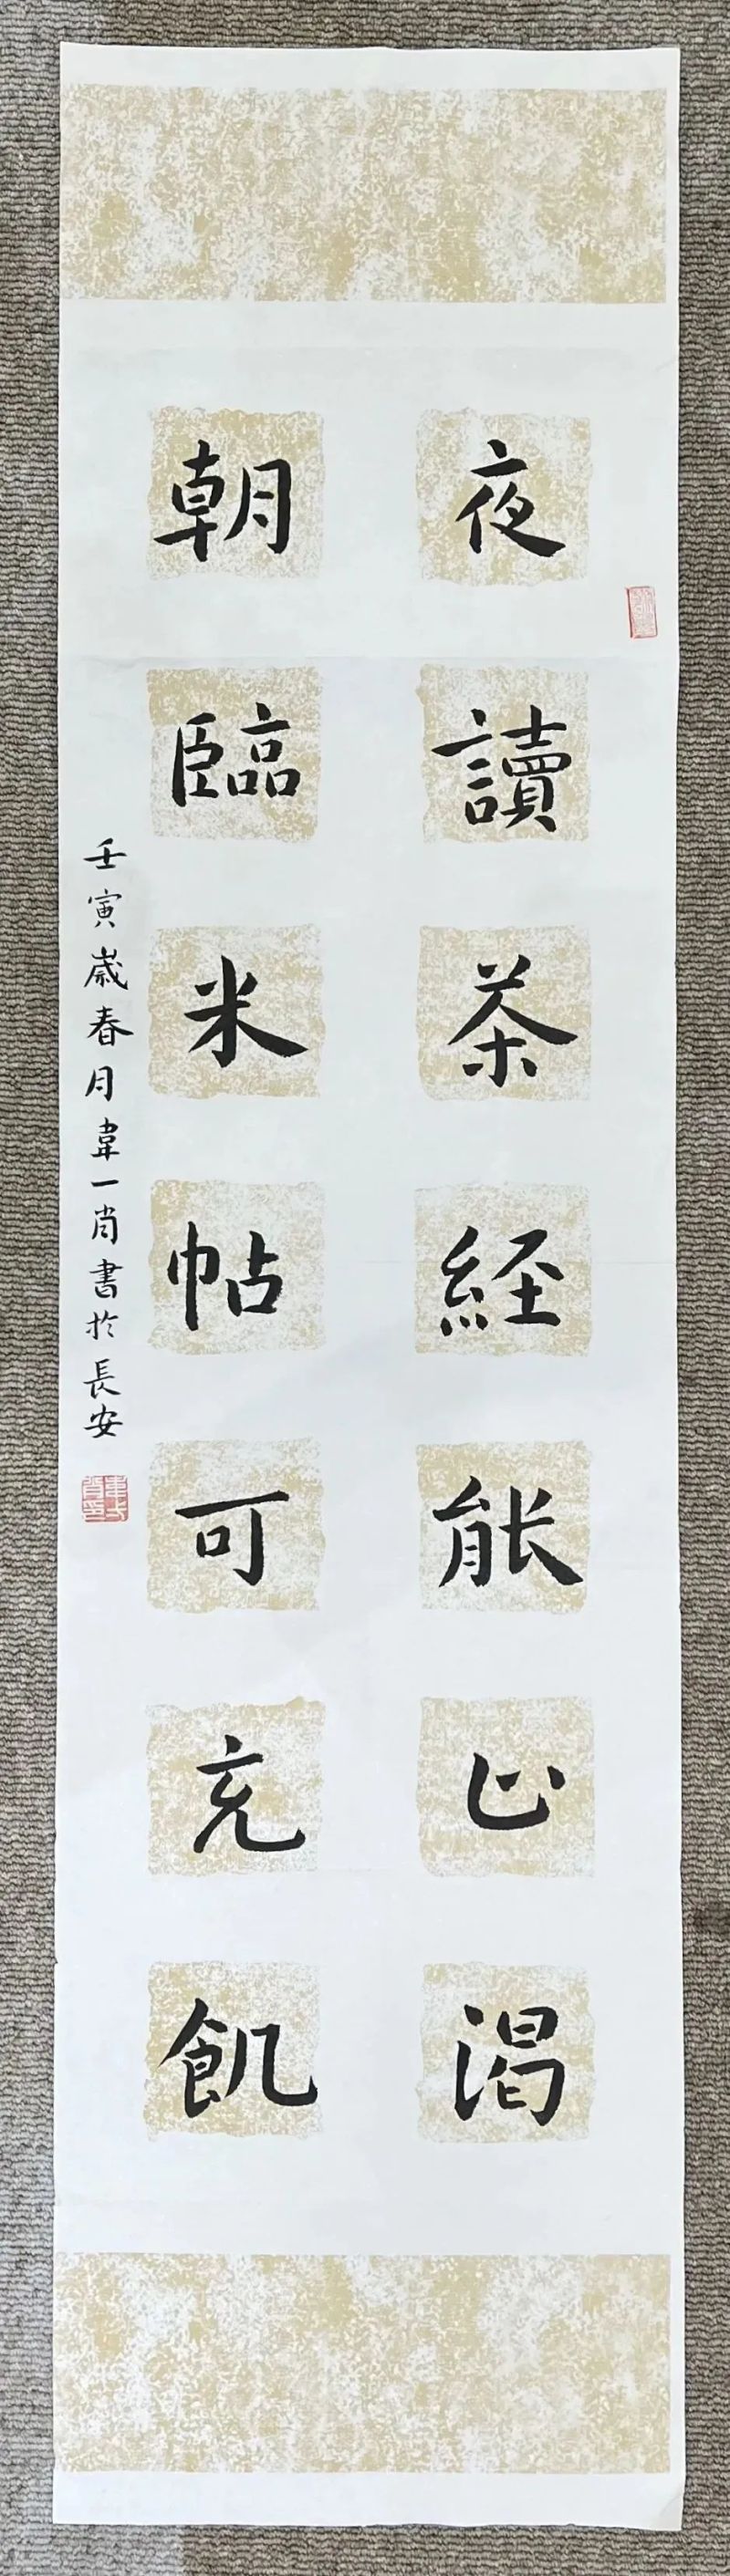 夜讀茶經能止渴
朝臨米帖可充飢
壬寅歲春月韋一肖書於長安